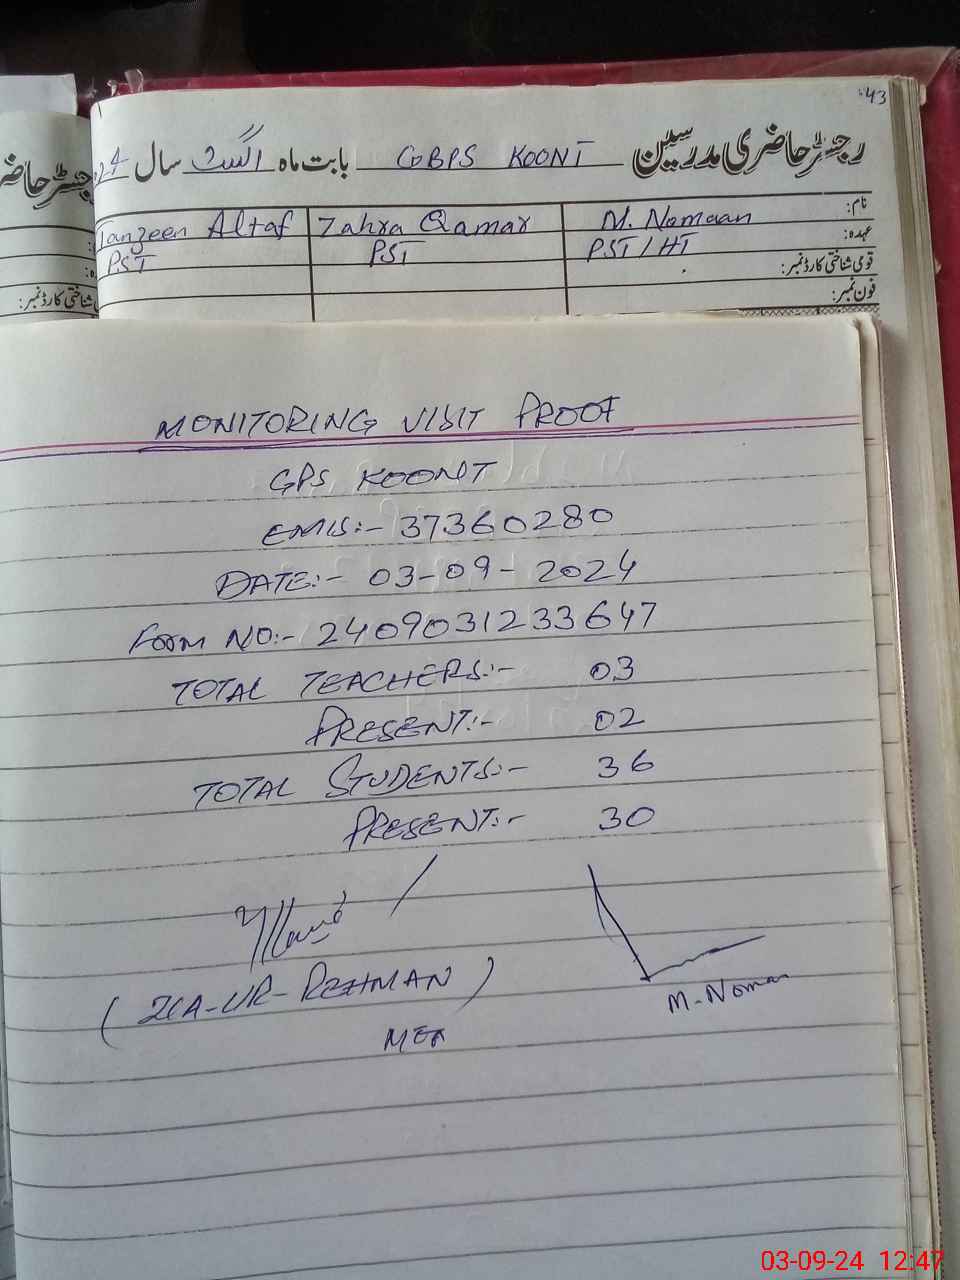 43
رجسٹر حاضری مدرسین GBPS KOONT بابت ماہ اگست سال 24
نام: M. Nomaan Zahra Qamar Tanzeen Altaf
عہدہ: PST/HT PST PST
قومی شناختی کارڈ نمبر:
فون نمبر:
MONITORING VISIT PROOF
GPS KOONT
EMIS:- 37360280
DATE:- 03-09-2024
FORM NO:- 2409031233647
TOTAL TEACHERS:- 03
PRESENT:- 02
TOTAL STUDENTS:- 36
PRESENT:- 30
(ZIA-UR-REHMAN)
M. Noman
MEA
03-09-24 12:47